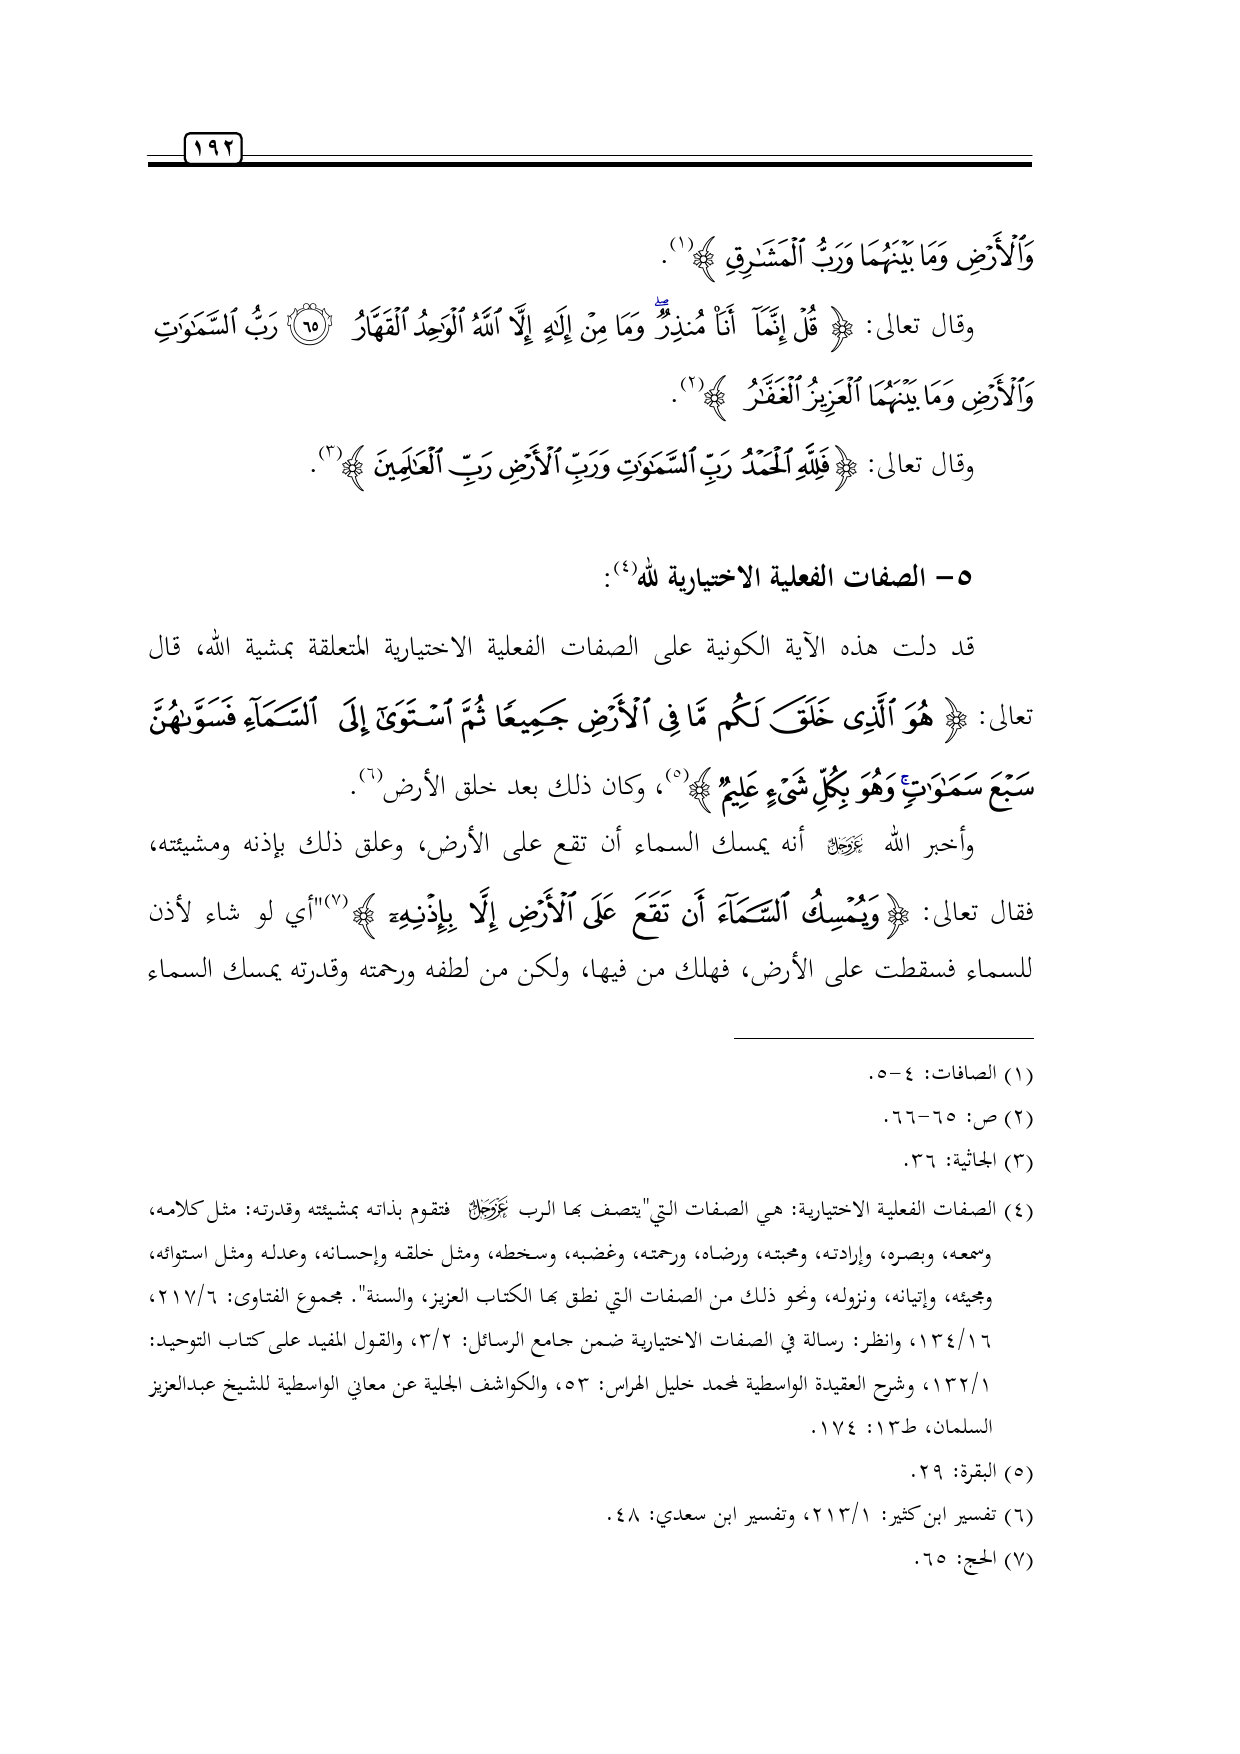 ١٩٢
وَٱلْأَرْضِ وَمَا بَيْنَهُمَا وَرَبُّ ٱلْمَشَٰرِقِ ﴾(١).
وقال تعالى: ﴿ قُلْ إِنَّمَآ أَنَا۠ مُنذِرٌۖ وَمَا مِنْ إِلَٰهٍ إِلَّا ٱللَّهُ ٱلْوَٰحِدُ ٱلْقَهَّارُ ۝٦٥ رَبُّ ٱلسَّمَٰوَٰتِ
وَٱلْأَرْضِ وَمَا بَيْنَهُمَا ٱلْعَزِيزُ ٱلْغَفَّٰرُ ﴾(٢).
وقال تعالى: ﴿ فَلِلَّهِ ٱلْحَمْدُ رَبِّ ٱلسَّمَٰوَٰتِ وَرَبِّ ٱلْأَرْضِ رَبِّ ٱلْعَٰلَمِينَ ﴾(٣).
٥- الصفات الفعلية الاختيارية لله(٤):
قد دلت هذه الآية الكونية على الصفات الفعلية الاختيارية المتعلقة بمشية الله، قال
تعالى: ﴿ هُوَ ٱلَّذِى خَلَقَ لَكُم مَّا فِى ٱلْأَرْضِ جَمِيعًا ثُمَّ ٱسْتَوَىٰٓ إِلَى ٱلسَّمَآءِ فَسَوَّىٰهُنَّ
سَبْعَ سَمَٰوَٰتٍۚ وَهُوَ بِكُلِّ شَىْءٍ عَلِيمٌ ﴾(٥)، وكان ذلك بعد خلق الأرض(٦).
وأخبر الله عَزَّوَجَلَّ أنه يمسك السماء أن تقع على الأرض، وعلق ذلك بإذنه ومشيئته،
فقال تعالى: ﴿ وَيُمْسِكُ ٱلسَّمَآءَ أَن تَقَعَ عَلَى ٱلْأَرْضِ إِلَّا بِإِذْنِهِۦٓ ﴾(٧)"أي لو شاء لأذن
للسماء فسقطت على الأرض، فهلك من فيها، ولكن من لطفه ورحمته وقدرته يمسك السماء
(١) الصافات: ٤-٥.
(٢) ص: ٦٥-٦٦.
(٣) الجاثية: ٣٦.
(٤) الصفات الفعلية الاختيارية: هي الصفات التي"يتصف بها الرب عَزَّوَجَلَّ فتقوم بذاته بمشيئته وقدرته: مثل كلامه،
وسمعه، وبصره، وإرادته، ومحبته، ورضاه، ورحمته، وغضبه، وسخطه، ومثل خلقه وإحسانه، وعدله ومثل استوائه،
ومجيئه، وإتيانه، ونزوله، ونحو ذلك من الصفات التي نطق بها الكتاب العزيز، والسنة". مجموع الفتاوى: ٢١٧/٦،
١٣٤/١٦، وانظر: رسالة في الصفات الاختيارية ضمن جامع الرسائل: ٣/٢، والقول المفيد على كتاب التوحيد:
١٣٢/١، وشرح العقيدة الواسطية لمحمد خليل الهراس: ٥٣، والكواشف الجلية عن معاني الواسطية للشيخ عبدالعزيز
السلمان، ط١٣: ١٧٤.
(٥) البقرة: ٢٩.
(٦) تفسير ابن كثير: ٢١٣/١، وتفسير ابن سعدي: ٤٨.
(٧) الحج: ٦٥.